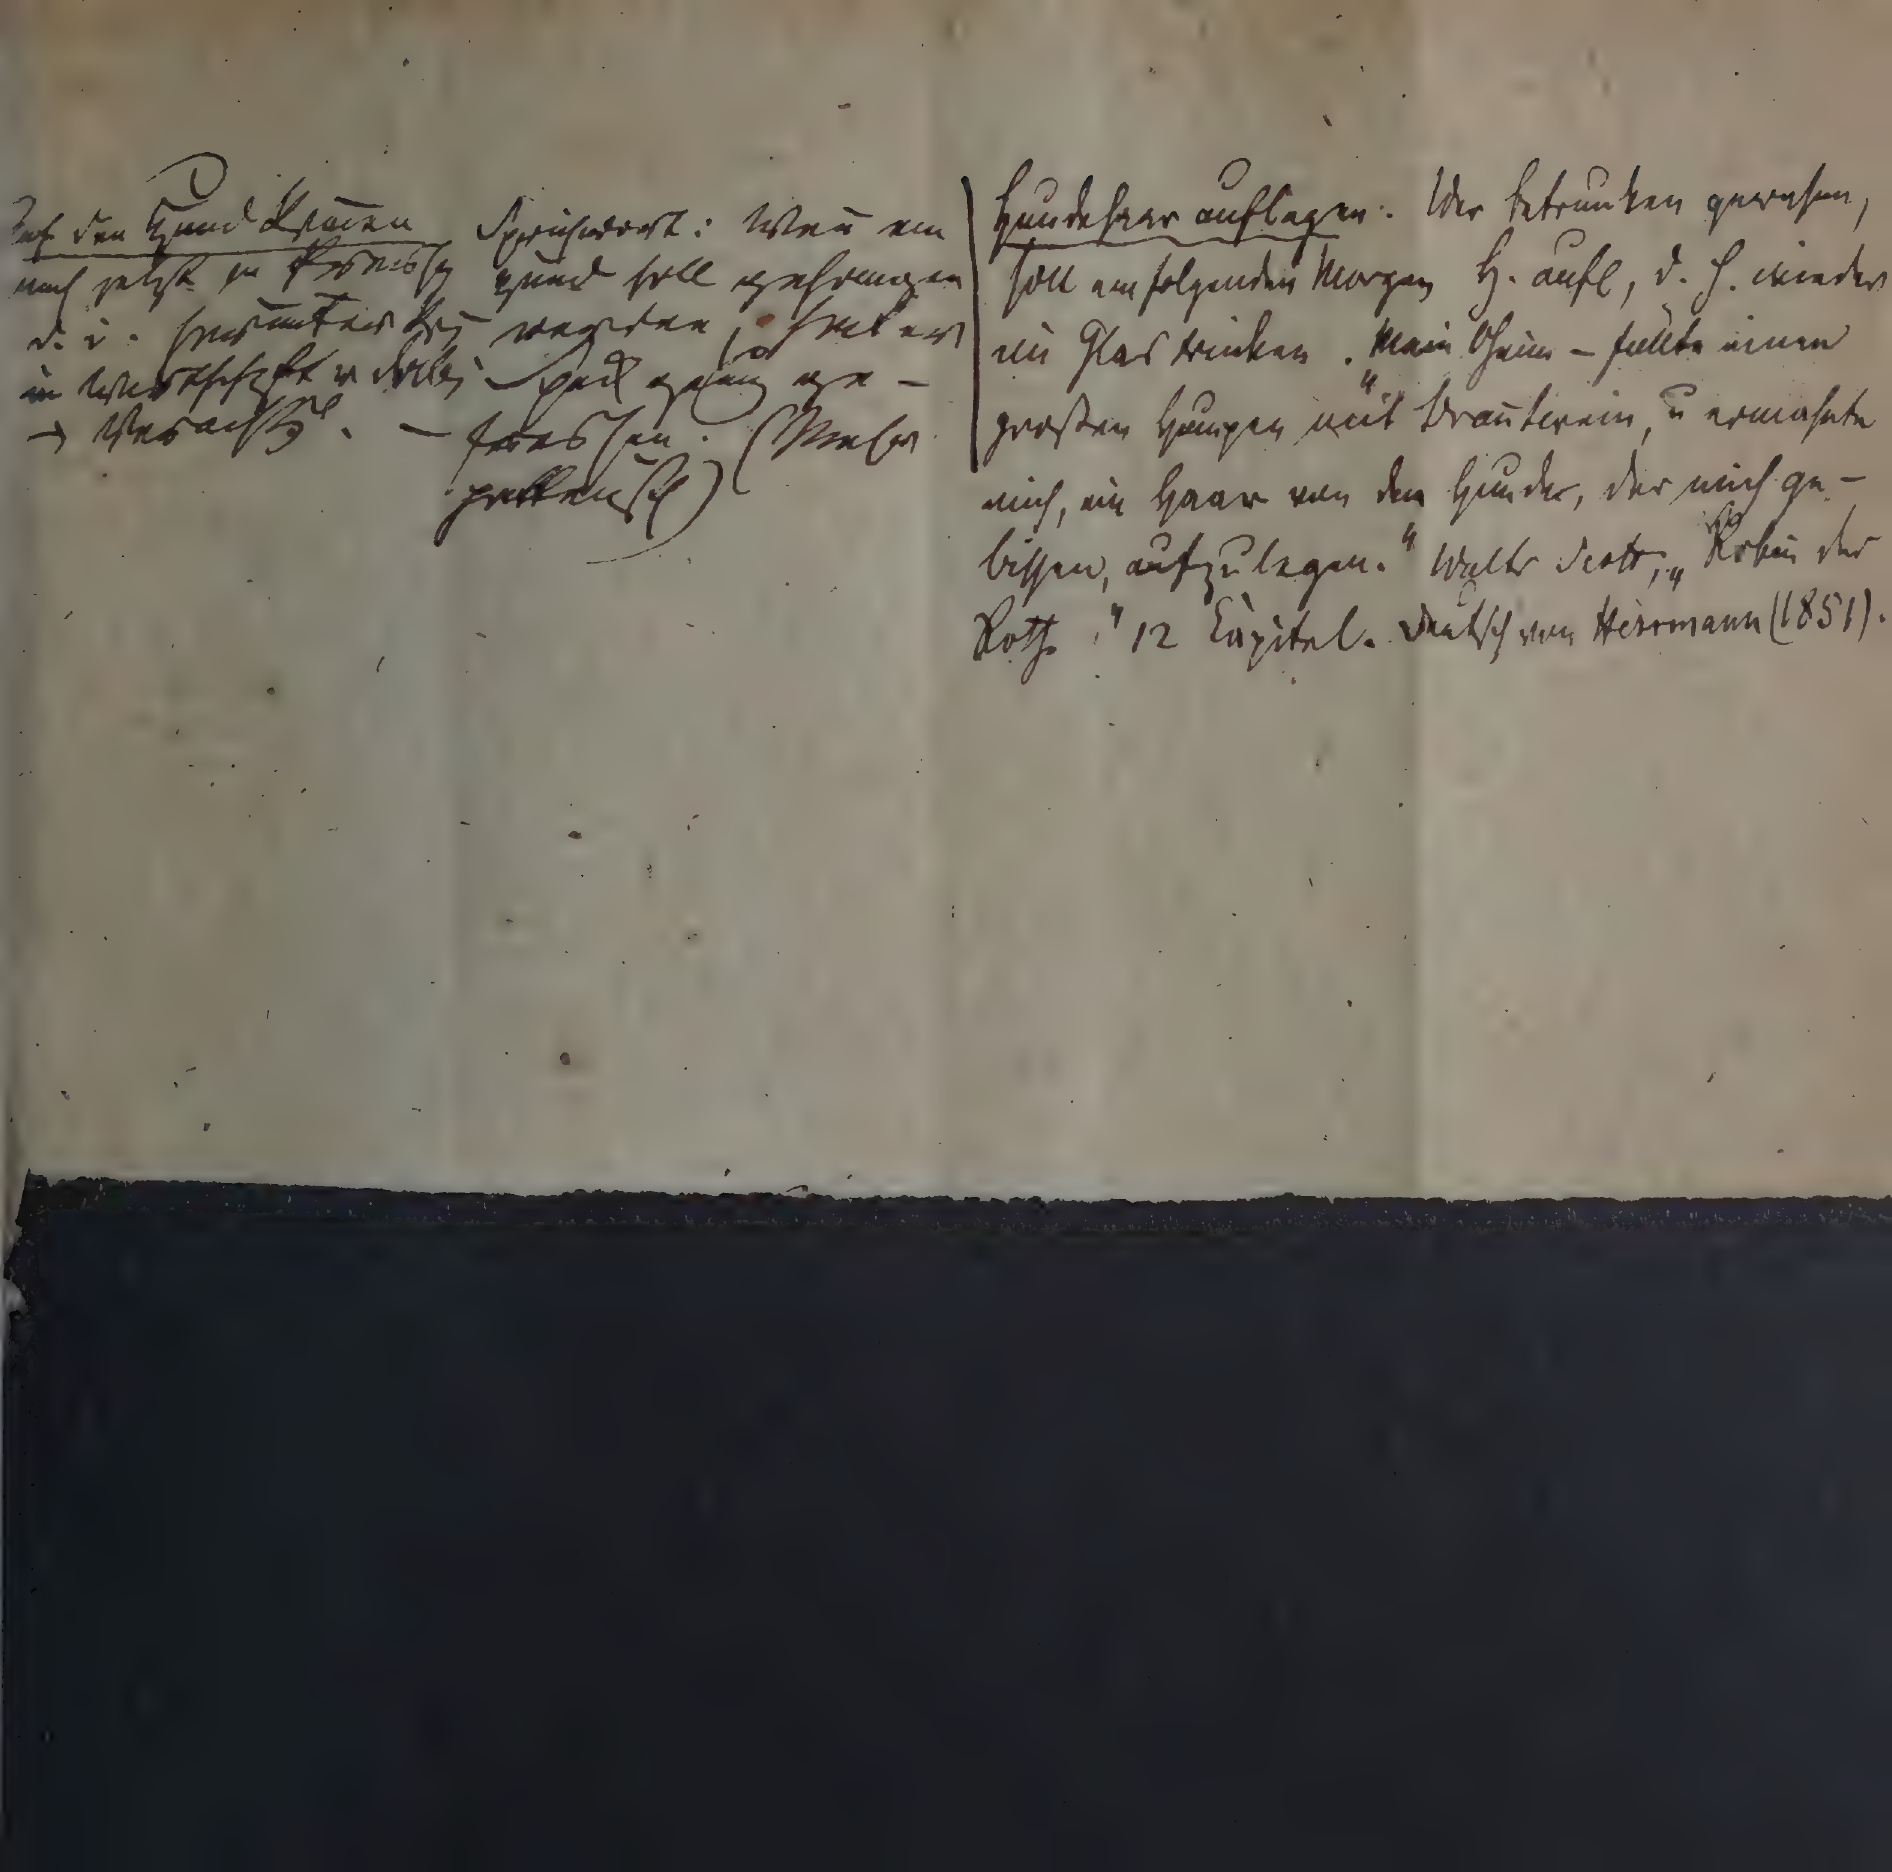 Auf den Hund kom̄en
noch jetzt in
d. i. herunter
in Wirthschaft u
Sprichwort: Wen̄ ein
Hund soll gehangen
werden, hat er
Speck genug ge-
fressen. (
Hundehaar auflegen. Wer betrunken gewesen,
soll am folgenden Morgen H. aufl, d. h. wieder
ein Glas trinken. „Mein Oheim – füllte einen
großen Humpen mit Bran̄twein, u ermahnte
mich, ein Haar von dem Hunde, der mich ge-
bissen, aufzulegen.“ Walter Scott, „Robin der
Rothe“ 12 Capitel. Deutsch von Herrmann (1851).